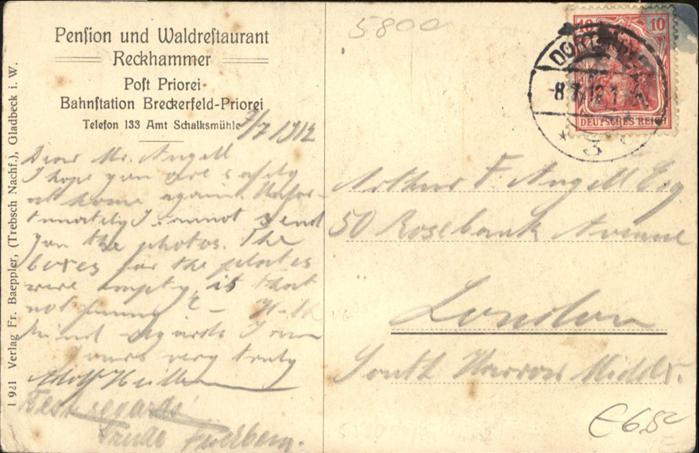 Pension und Waldrestaurant
Reckhammer
Post Priorei
Bahnstation Breckerfeld-Priorei
Telefon 133 Amt Schalksmühle
7/7 1912
Dear Mr. Angell
I hope you are safely
at home again. Unfor-
tunately I cannot send
you the photos. The
boxes for the plates
were empty, is that
not funny? - With
kind regards I am
yours very truly
Adolf
Best regards
Trude
5800
10 10
DEUTSCHES REICH
DORTMUND
8.7.12.1
3
Arthur F. Angell Esq
50 Rosebank Avenue
London
South Harrow Middlx.
€6.50
1921 Verlag Fr. Baeppler, (Trebsch Nachf.), Gladbeck i. W.